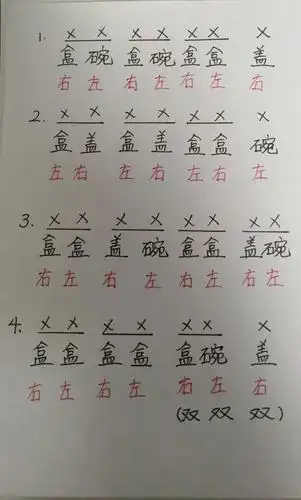 1. X X X X X X X
盒 碗 盒 碗 盒 盒 盖
右 左 右 左 右 左 右
2. X X X X X X X
盒 盖 盒 盖 盒 盒 碗
左 右 左 右 左 右 左
3. X X X X X X X X
盒 盒 盖 碗 盒 盒 盖 碗
右 左 右 左 右 左 右 左
4. X X X X X X X
盒 盒 盒 盒 盒 碗 盖
右 左 右 左 右 左 右
(双 双 双)